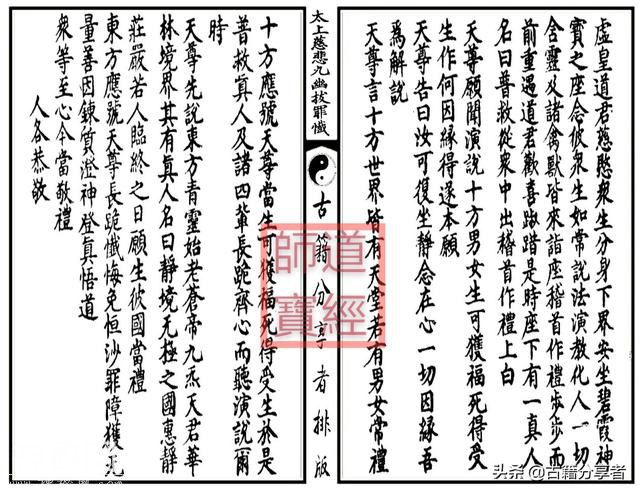 虛皇道君慈愍衆生分身下界安坐碧霞神
寳之座念彼衆生如常說法演教化人一切
含靈以及諸禽獸皆來詣座稽首作禮步步而
前重遇道君歡喜踴踖是時座下有一真人
名曰普救從衆中出稽首作禮上白
天尊願聞演說十方男女生可獲福死得受
生作何因緣得遂本願
天尊告曰汝可復坐靜念在心一切因緣吾
爲解說
天尊言十方世界皆有天堂若有男女常禮
太上慈悲九幽拔罪懺
古籍分享者排版
十方應號天尊當生可獲福死得受生於是
普救眞人及諸四軰長跪齊心而聽演說爾
時
天尊先說東方青靈始老蒼帝九炁天君華
林境界其有眞人名曰靜境无極之國惠靜
莊嚴若人臨終之日願生彼國當禮
東方應號天尊長跪懺悔免恒沙罪障獲无
量善因鍊質澄神登眞悟道
衆等至心今當敬禮
人各恭敬
道經師寶
头条@古籍分享者